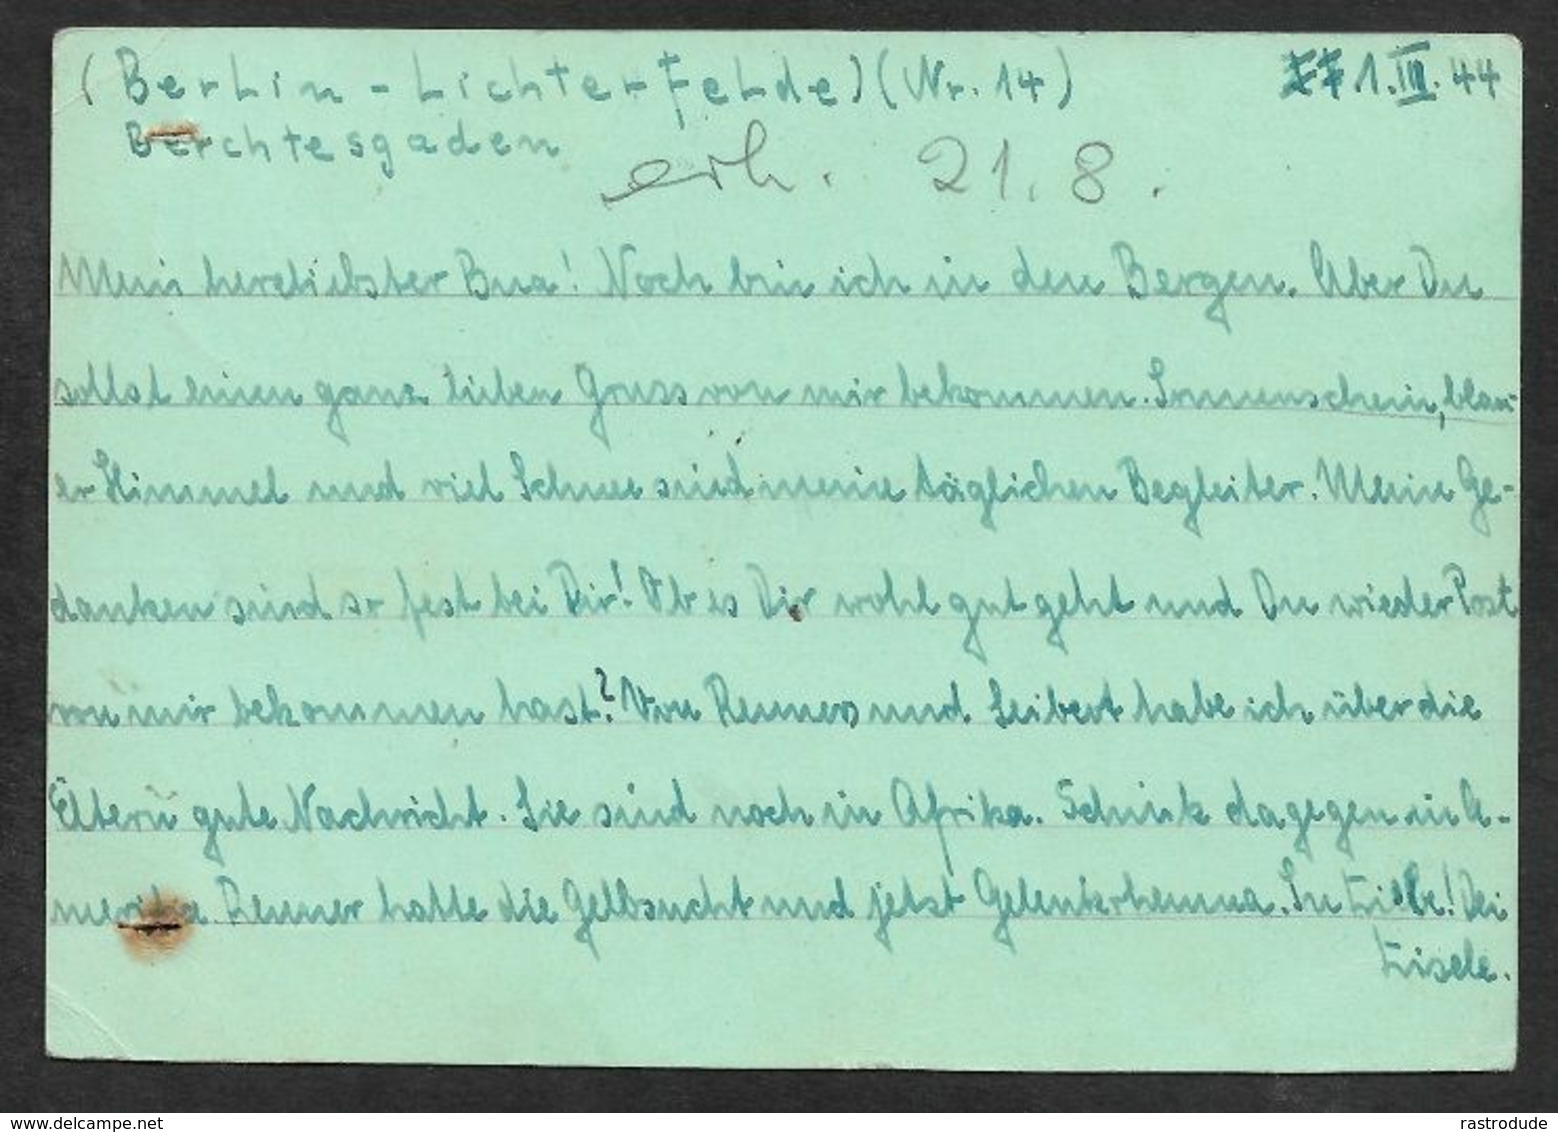 (Berlin-Lichterfelde) (Nr. 14) 1.III.44
Berchtesgaden
erh. 21.8.
Mein herzliebster Bua! Noch bin ich in den Bergen. Aber Du
sollst einen ganz lieben Gruss von mir bekommen. Sonnenschein, blau-
er Himmel und viel Schnee sind meine täglichen Begleiter. Meine Ge-
danken sind so fest bei Dir! Ob es Dir wohl gut geht und Du wieder Post
von mir bekommen hast? Von Renners und Seibert habe ich über die
Eltern gute Nachricht. Sie sind noch in Afrika. Schink dagegen in A-
merika. Renner hatte die Gelbsucht und jetzt Gelenkrheuma. In Liebe! Dei
Lisele.
www.delcampe.net
rastrodude